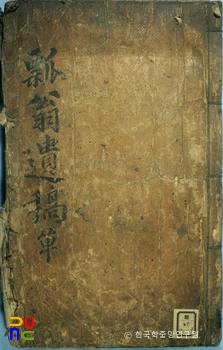 瓢翁遺稿草
© 한국학중앙연구원